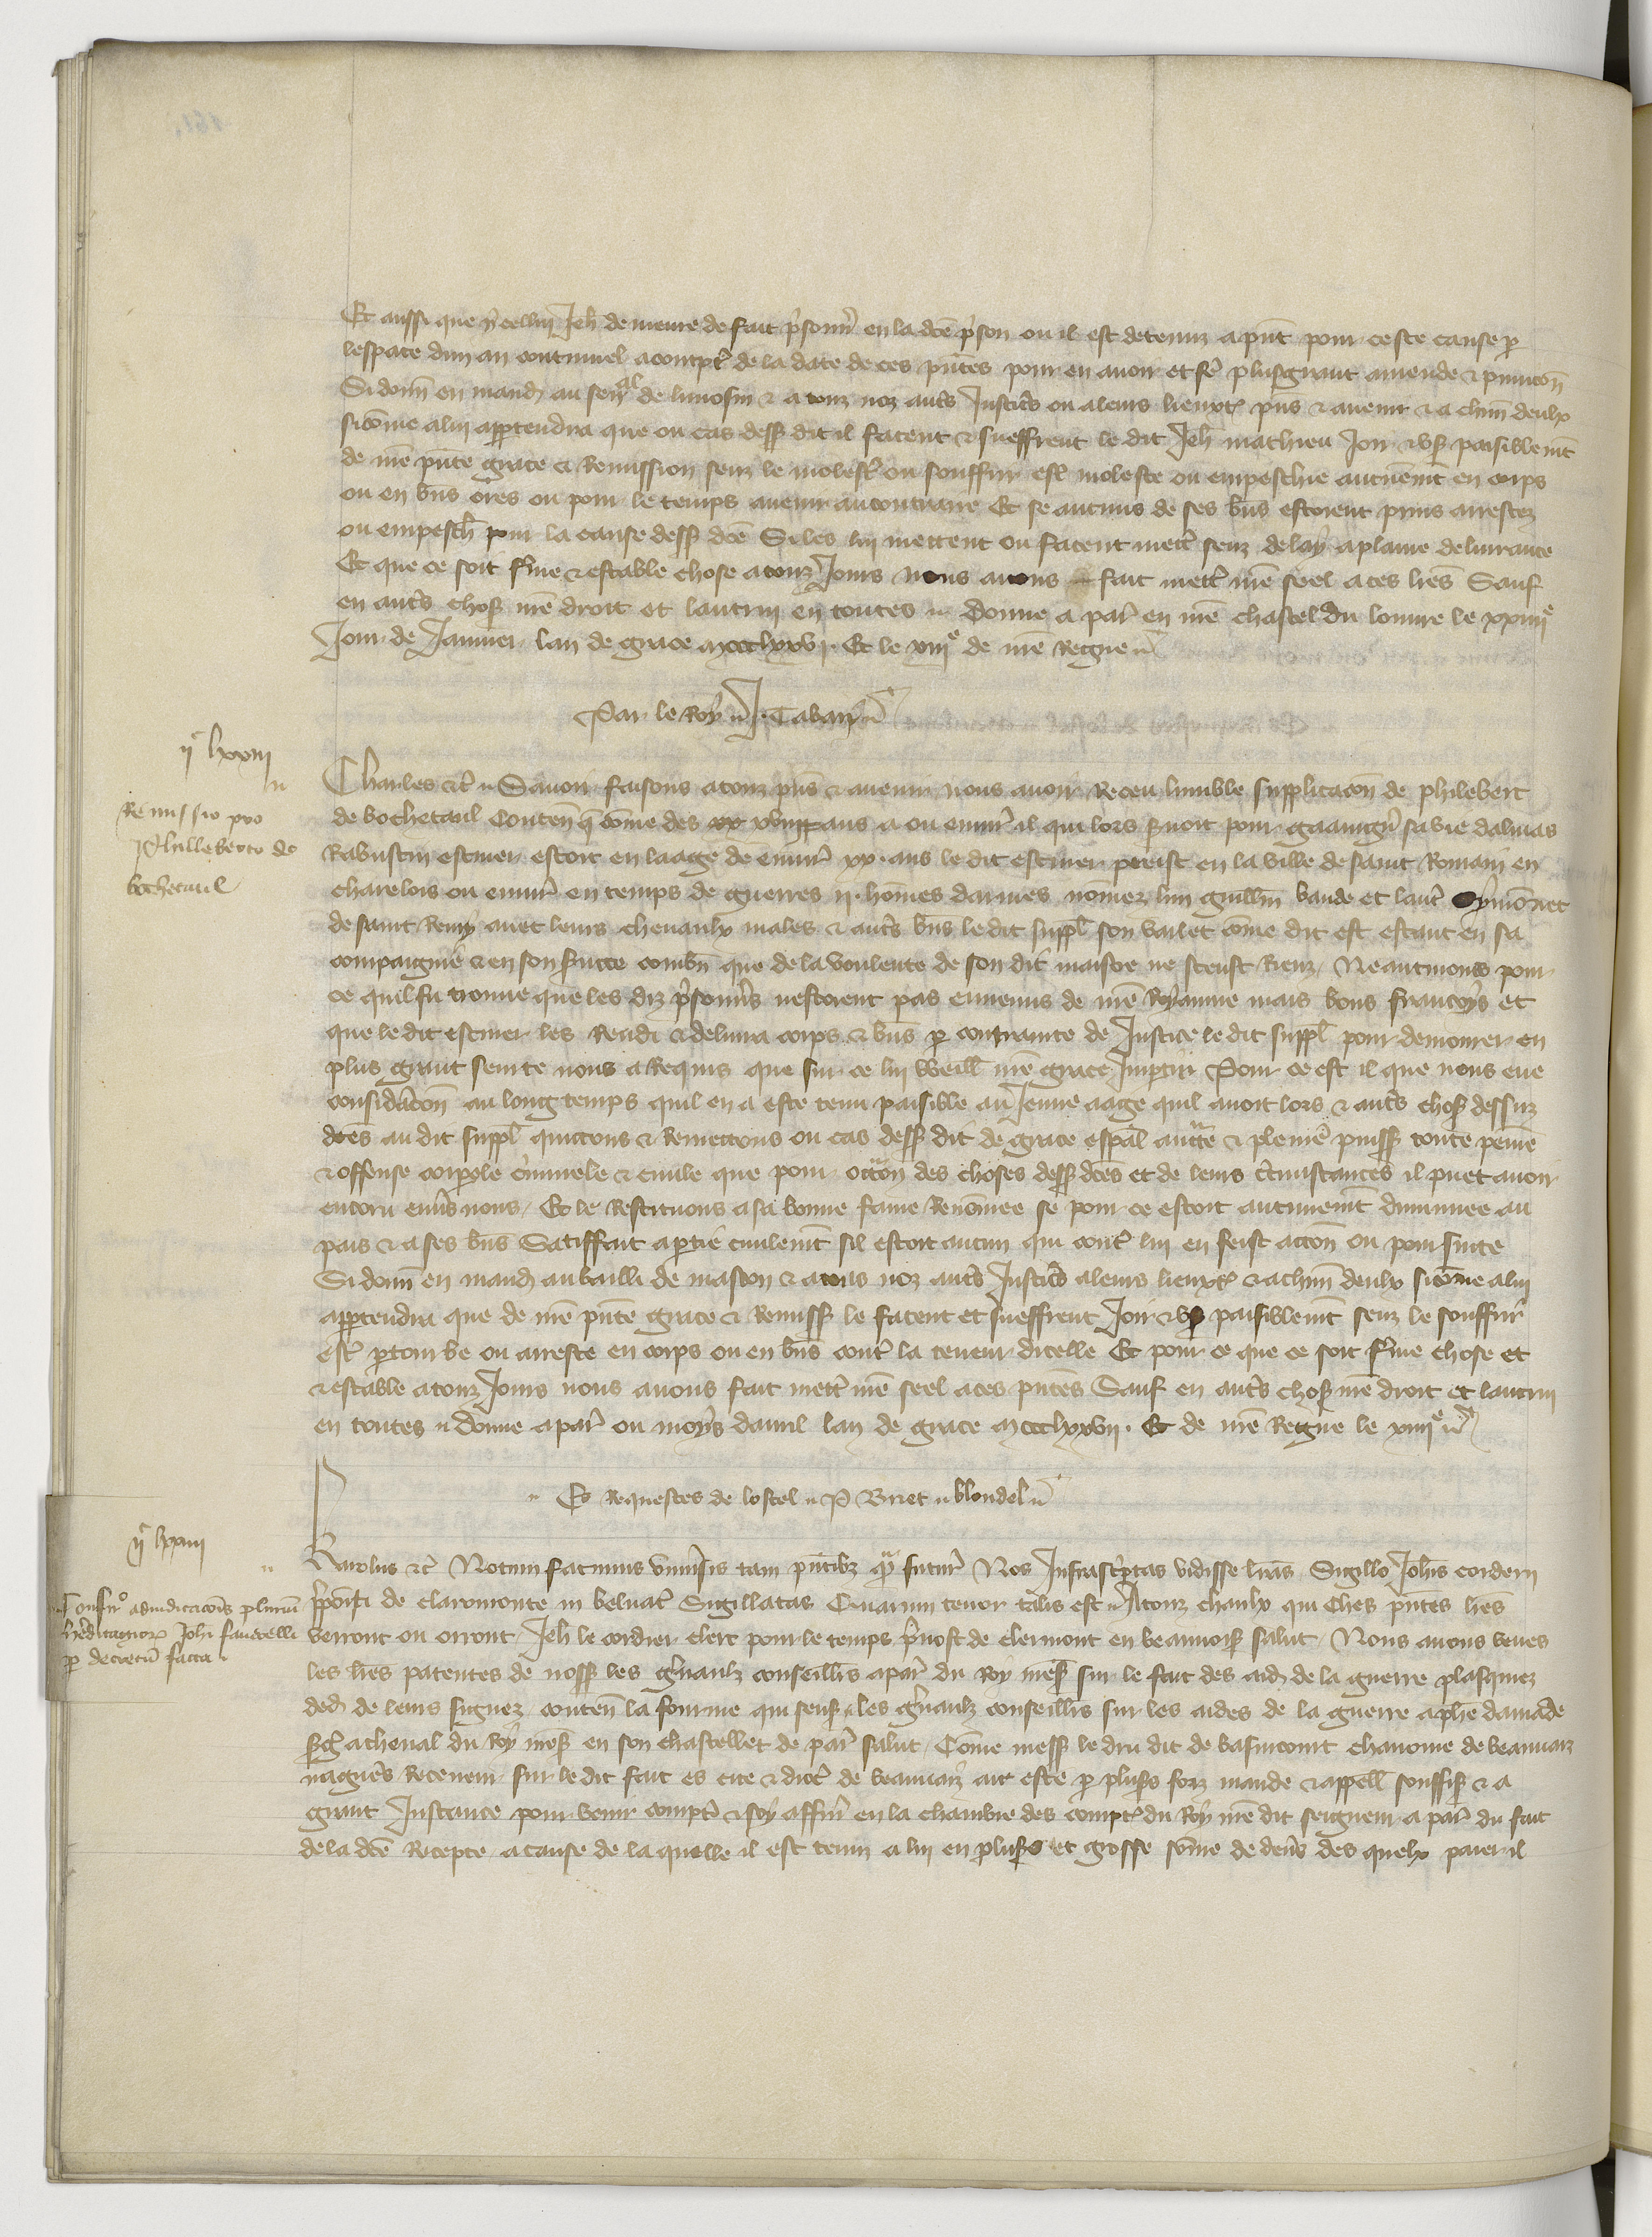 Et aussi que ycellui Jeh de meure de fait p'sonn' en la dce p'son ou il est detenuz a pnt pour ceste cause p
lespace dun an continuel a compt' de la date de ces pntes pour en avoir et fe' plus grant amende & punicon
Si donn en mand au senal de limosin & a touz noz auts Justics ou a leurs lieux pns & avenir & a chun deulx
sicome a lui appendra que ou cas dess dit il facent & sueffrent le dit Jeh mathieu Joir & us paisiblemt
de nre pnte grace & Remission senz le molest' ou souffrir est' moleste ou empeschie aucunemt en corps
ou en bns ores ou pour le temps avenir au contraire Et se aucuns de ses bns estoient prins arrestez
ou empesch pour la cause dess dce Si les lui mettent ou facent mett' senz delay a plaine delivrance
Et que ce soit f'me & estable chose a touz Jours nous avons fait mett' nre seel a ces lres Sauf
en auts chos nre droit et lautrui en toutes donne a par' en nre chastel du louvre le xxiiiie
Jour de Janvier lan de grace mccclxxvi. Et le xiiie de nre Regne
Par le Roy J. Tabary
iic lxxiii
Remissio pro
Philleberto de
bochetaul
Charles &c Savoir faisons a touz pns & avenir nous avoir Receu lumble supplicacon de philebert
de bochetaul Conten q come des xviii ans a ou envir' il qui lors s'voit pour gaaingn' sa vie dalmas
Rabustin escuier estoit en laage de envir' xx. ans le dit escuier preist en la ville de saint Romain en
charelois ou envir' en temps de guerres ii. homes darmes nomez lun guillm baude et laut' symonnet
de saint Remy avec leurs chevaulx males & auts bns le dit suppl son varlet come dit est estant en sa
compaignie & en son s'vice combn que de la voulente de son dit maistre ne sceust Rienz Neantmoins pour
ce quil fu trouve que les diz p'sonn's nestoient pas ennemis de nre Royaume mais bons francoys et
que le dit escuier les Rendi & delivra corps & bns p contrainte de Justice le dit suppl pour demourer en
plus grant seurte nous a Requis que sur ce lui vueill nre grace Imp'tir Pour ce est il que nous eue
considacon au long temps quil en a este tenu paisible au Jeune aage quil avoit lors & auts chos dessuz
dces au dit suppl quictons & Remettons ou cas dess dit de grace espal auctte & plenie' puiss toute peine
& offense corporle c'minele & civile que pour occon des choses dess dces et de leurs c'cunstances il puet avoir
encoru env's nous Et le Restituons a sa bonne fame Renomee se pour ce estoit aucunemt diminuee au
pais & a ses bns Satiffait a ptie civilemt sil estoit aucun qui cont' lui en feist accon ou poursuite
Si donn en mand au bailli de mascon & a tous noz auts Justics a leurs lieux & a chun deulx sicome a lui
appendra que de nre pnte grace & Remiss le facent et sueffrent Joir & us paisiblemt senz le souffrir
est' ptourbe ou arreste en corps ou en bns cont' la teneur dicelle Et pour ce que ce soit f'me chose et
& estable a touz Jours nous avons fait mett' nre seel a ces pntes Sauf en auts chos nre droit et lautrui
en toutes donne a par' ou moys davril lan de grace mccclxxvii. Et de nre Regne le xiiiie
Es Requestes de lostel P Briet blondel
iic lxxiiii
Confir° adiudicacois plurium
h'editagior Johi fauvelli
p decretu facta
Karolus &c Notum facimus univ'sis tam pntibz q futur' Nos Infrasc'ptas vidisse lras Sigillo Johis corderii
p'positi de claromonte in belvac' Sigillatas Quarum tenor talis est A touz ceaulx qui ches pntes lres
verront ou orront Jeh le cordier clerc pour le temps p'vost de clermont en beauvois salut Nous avons veues
les lres patentes de noss les gn'aulz conseill's a par' du Roy nres sur le fait des aid de la guerre plasquiez
ded de leurs signez conten la fourme qui sens les gn'aulz conseill's sur les aides de la guerre a phe damade
s'g a cheval du Roy nres en son chastellet de par' salut Come mess le dru dit de bahucourt chanoine de beauvaiz
nagu's Receveur sur le dit fait es cite & dioc' de beauvaiz ait este p plus's foiz mande & appell souffis & a
grant Instance pour venir compt' & soy affin' en la chambre des compt' du Roy nre dit seigneur a par' du fait
de la dce Recepte a cause de laquelle il est tenu a lui en plus's et grosse some de den's des quelx paier il